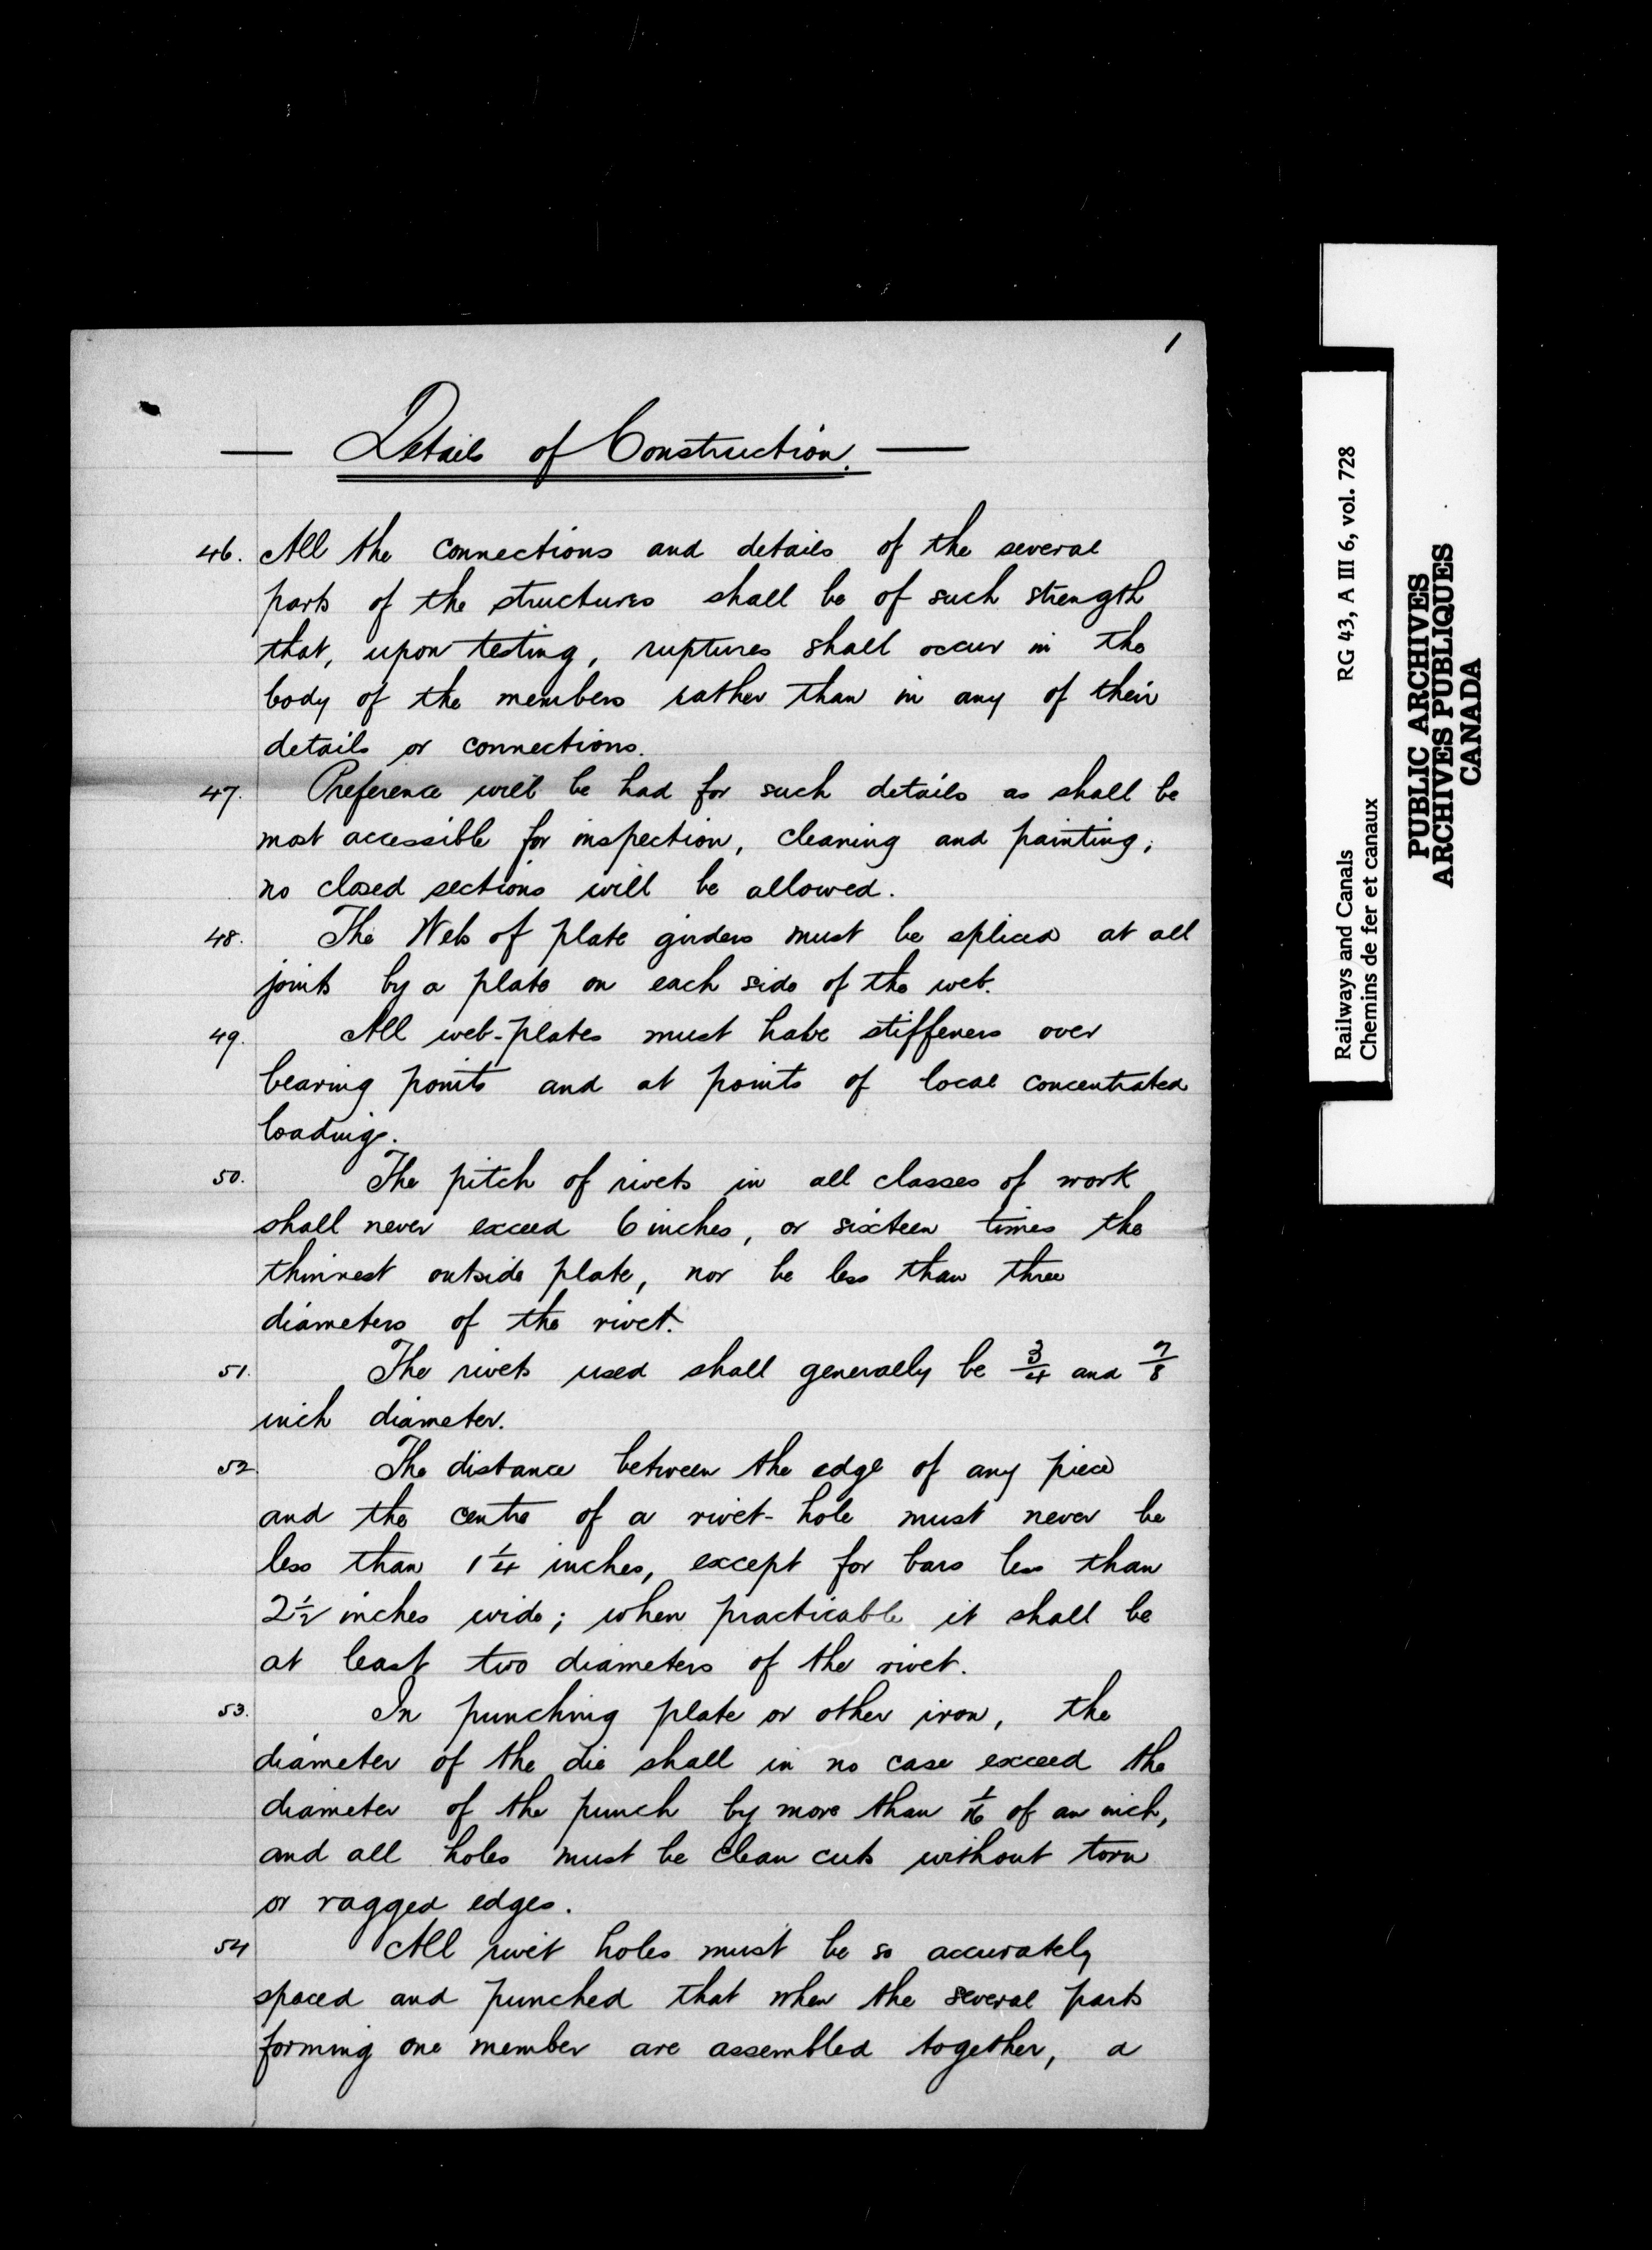 1
— Details of Construction. —
46. All the connections and details of the several
parts of the structures shall be of such strength
that, upon testing, ruptures shall occur in the
body of the members rather than in any of their
details or connections.
47. Preference will be had for such details as shall be
most accessible for inspection, cleaning and painting;
no closed sections will be allowed.
48. The Web of plate girders must be spliced at all
joints by a plate on each side of the web.
49. All web-plates must have stiffeners over
bearing points and at points of local concentrated
loadings.
50. The pitch of rivets in all classes of work
shall never exceed 6 inches, or sixteen times the
thinnest outside plate, nor be less than three
diameters of the rivet.
51. The rivets used shall generally be 3/4 and 7/8
inch diameter.
52. The distance between the edge of any piece
and the centre of a rivet-hole must never be
less than 1 1/4 inches, except for bars less than
2 1/2 inches wide; when practicable it shall be
at least two diameters of the rivet.
53. In punching plate or other iron, the
diameter of the die shall in no case exceed the
diameter of the punch by more than 1/16 of an inch,
and all holes must be clean cuts without torn
or ragged edges.
54 All rivet holes must be so accurately
spaced and punched that when the several parts
forming one member are assembled together, a
Railways and Canals RG 43, A III 6, vol. 728
Chemins de fer et canaux
PUBLIC ARCHIVES
ARCHIVES PUBLIQUES
CANADA